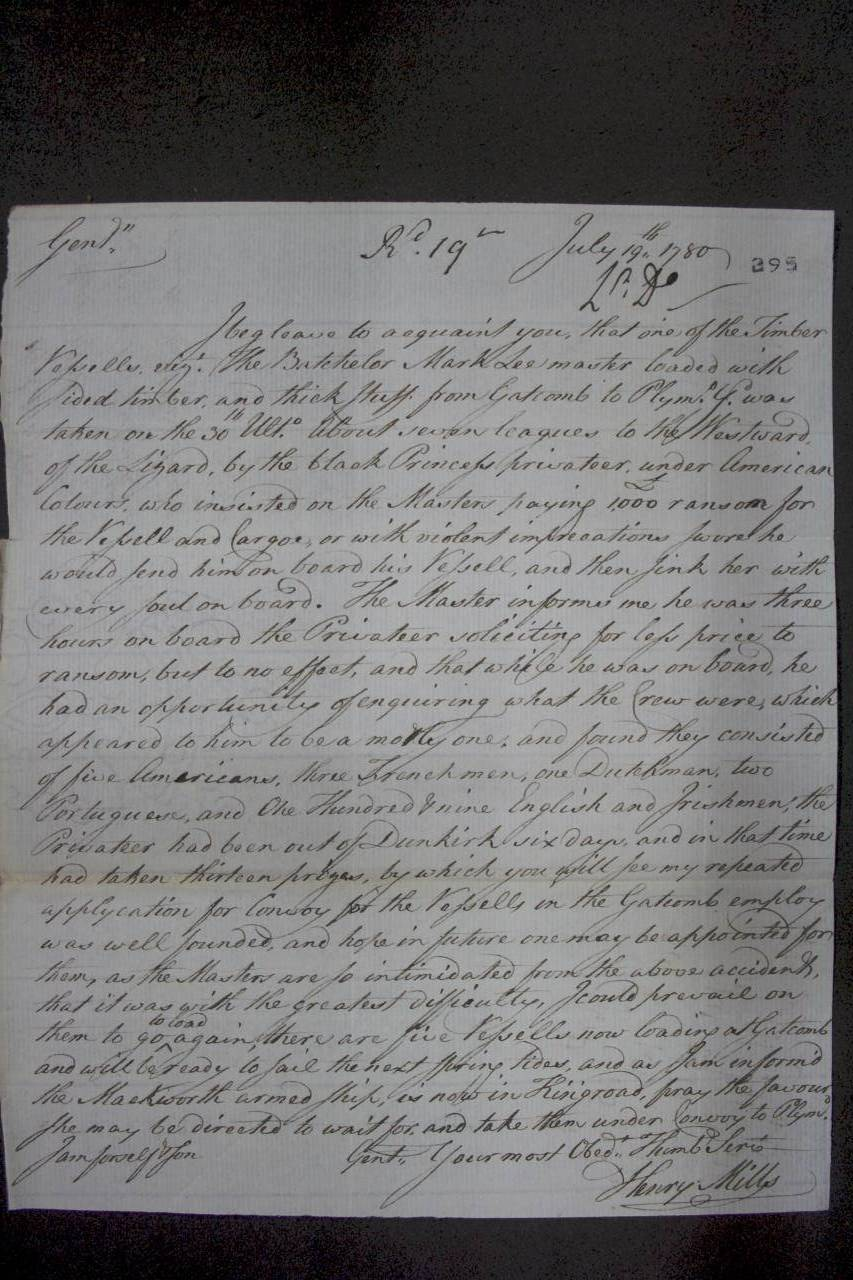 Gent.n Rd. 19th July 19th. 1780
395
I beg leave to acquaint you, that one of the Timber
Vessells, vizt. The Batchelor Mark Lee master loaded with
sided timber, and thick stuff from Gatcomb to Plymo. was
taken on the 30th Ulto. about seven leagues to the Westward
of the Lizard, by the black Princess privateer, under American
Colours, who insisted on the Masters paying £1,000 ransom for
the Vessell and Cargoe, or with violent imprecations swore he
would send him on board his Vessell, and then sink her with
every soul on board. The Master informs me he was three
hours on board the Privateer soliciting for less price to
ransom, but to no effect, and that while he was on board, he
had an opportunity of enquiring what the Crew were, which
appeared to him to be a motly one, and found they consisted
of five Americans, three Frenchmen, one Dutchman, two
Portuguese, and One Hundred & nine English and Irishmen; the
Privateer had been out of Dunkirk six days, and in that time
had taken thirteen prizes, by which you will see my repeated
applycation for Convoy for the Vessells in the Gatcomb employ
was well founded, and hope in future one may be appointed for
them, as the Masters are so intimidated from the above accident,
that it was with the greatest difficulty, I could prevail on
them to go to load again, there are five Vessells now loading at Gatcomb
and will be ready to sail the next spring tides, and as I am inform'd
the Mackworth armed ship, is now in Kingroad, pray the favour
she may be directed to wait for and take them under Convoy to Plymo.
I am for self & son Gent.n Your most Obedt. Humb. Serv.
Henry Mills